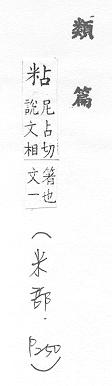 類篇
粘 尼占切 說文相箸也 文一
(米部．P250)